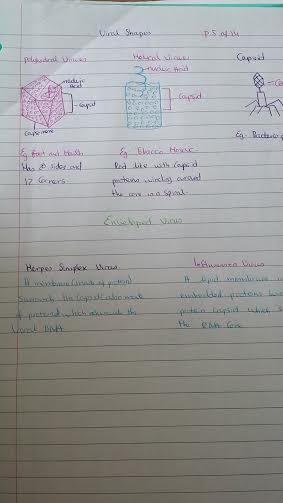 Viral Shapes
P.5 of 14
Polyhedral Viruses
Helical Viruses
Capsid
nucleic Acid
nucleic
Acid
Capsid
Capsid
Capsomere
Eg Foot and Mouth
Has sides and
12 Corners.
Eg. Tobacco Mosaic
Rod like with Capsid
proteins winding around
the core in a Spiral.
Eg. Bacterio
Enveloped Virus
Herpes Simplex Virus
A membrane (made of protein)
Surrounds the Capsid also made
of protein which the
Viral DNA
Influenza Virus
A lipid membrane
embedded proteins
protein Capsid which
the RNA Core